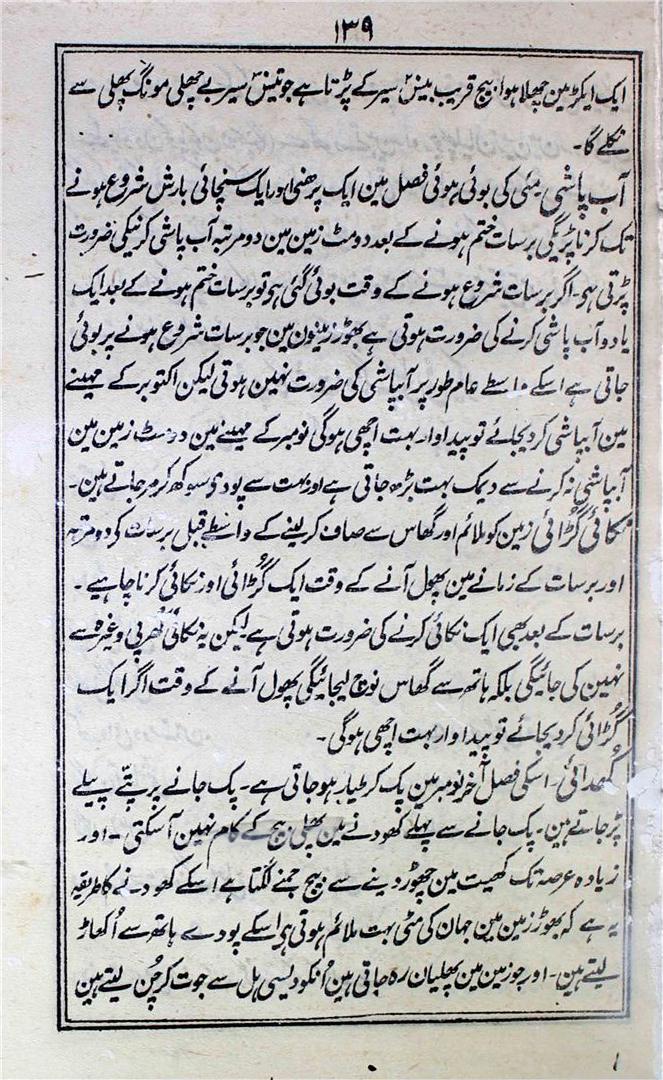 ۱۳۹
ایک ایکڑ مین چھلا ہوا بیج قریب بیس سیر کے پڑتا ہے جو تیس سیر بے چھلی مونگ پھلی سے
نکلے گا۔
آب پاشی مئی کی بوئی ہوئی فصل مین ایک پرھنی اور ایک سنچائی بارش شروع ہونے
تک کرنا پڑیگی برسات ختم ہونے کے بعد دومٹ زمین مین دو مرتبہ آب پاشی کرنیکی ضرورت
پڑتی ہی۔ اگر برسات شروع ہونے کے وقت بوئی گئی ہی تو برسات ختم ہونے کے بعد ایک
یا دو آب پاشی کرنے کی ضرورت ہوتی ہے بھوڑ زمینون مین جو برسات شروع ہونے پر بوئی
جاتی ہے اسکے واسطے عام طور پر آبپاشی کی ضرورت نہین ہوتی لیکن اکتوبر کے مہینے
مین آبپاشی کر دیجائے تو پیداوار بہت اچھی ہوگی نومبر کے مہینے مین دومٹ زمین مین
آبپاشی نہ کرنے سے دیمک بہت بڑھ جاتی ہے اور بہت سے پودی سوکھ کر مر جاتے ہین۔
نکائی گُڑائی زمین کو ملائم اور گھاس سے صاف کر لینے کے واسطے قبل برسات کی دو مرتبہ
اور برسات کے زمانے مین پھول آنے کے وقت ایک گُڑائی اور نکائی کرنا چاہیے۔
برسات کے بعد بھی ایک نکائی کرنے کی ضرورت ہوتی ہے لیکن یہ نکائی کُھرپی وغیرہ سے
نہین کی جائیگی بلکہ ہاتھ سے گھاس نوچ لیجائیگی پھول آنے کے وقت اگر ایک
گُڑائی کر دیجائے تو پیداوار بہت اچھی ہوگی۔
کُھدائی۔ اسکی فصل آخر نومبر مین پک کر طیار ہو جاتی ہے۔ پک جانے پر پتے پیلے
پڑ جاتے ہین۔ پک جانے سے پہلے کھودنے مین پھلی بیج کے کام نہین آسکتی۔ اور
زیادہ عرصہ تک کھیت مین چھوڑ دینے سے بیج جمنے لگتا ہے اسکے کھودنے کا طریقہ
یہ ہے کہ بھوڑ زمین مین جہان کی مٹی بہت ملائم ہوتی ہی اسکے پودے ہاتھ سے اُکھاڑ
لیتے ہین۔ اور جو زمین مین پھلیان رہ جاتی ہین اُنکو دیسی ہل سے جوت کر چُن لیتے ہین